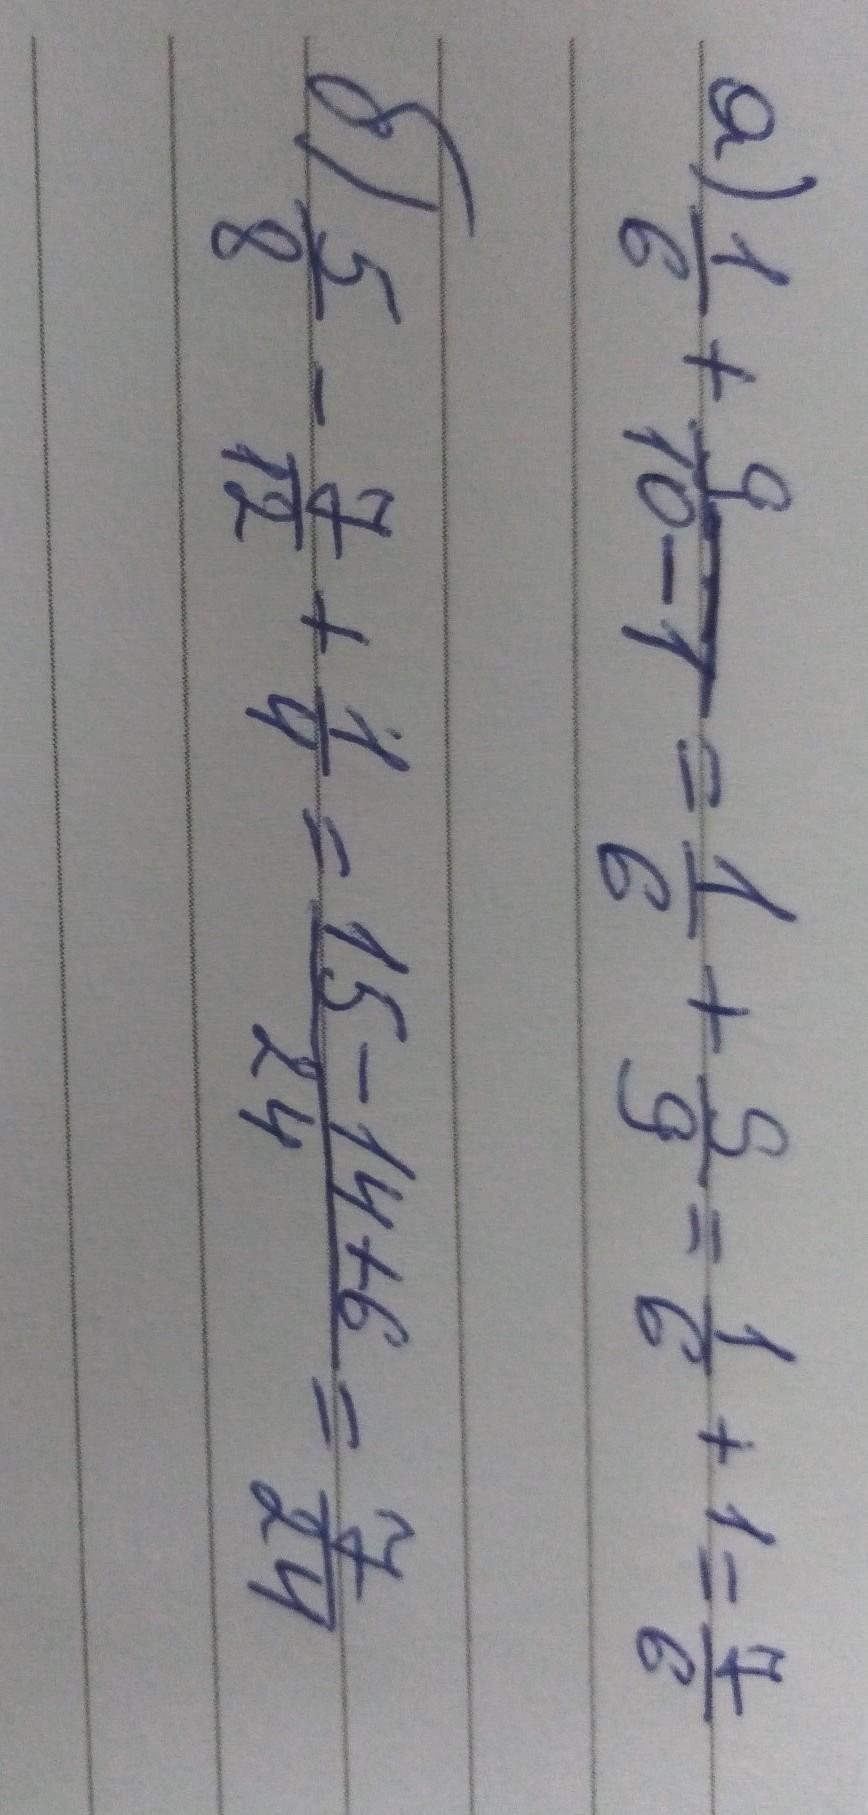 а) 1/6 + 9/(10-1) = 1/6 + 9/9 = 1/6 + 1 = 7/6
б) 5/8 - 7/12 + 1/4 = (15-14+6)/24 = 7/24